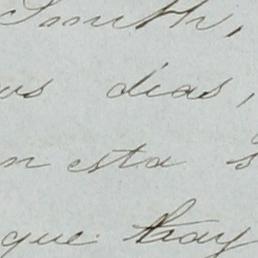 Smith,
us dias,
n esta s
que hay